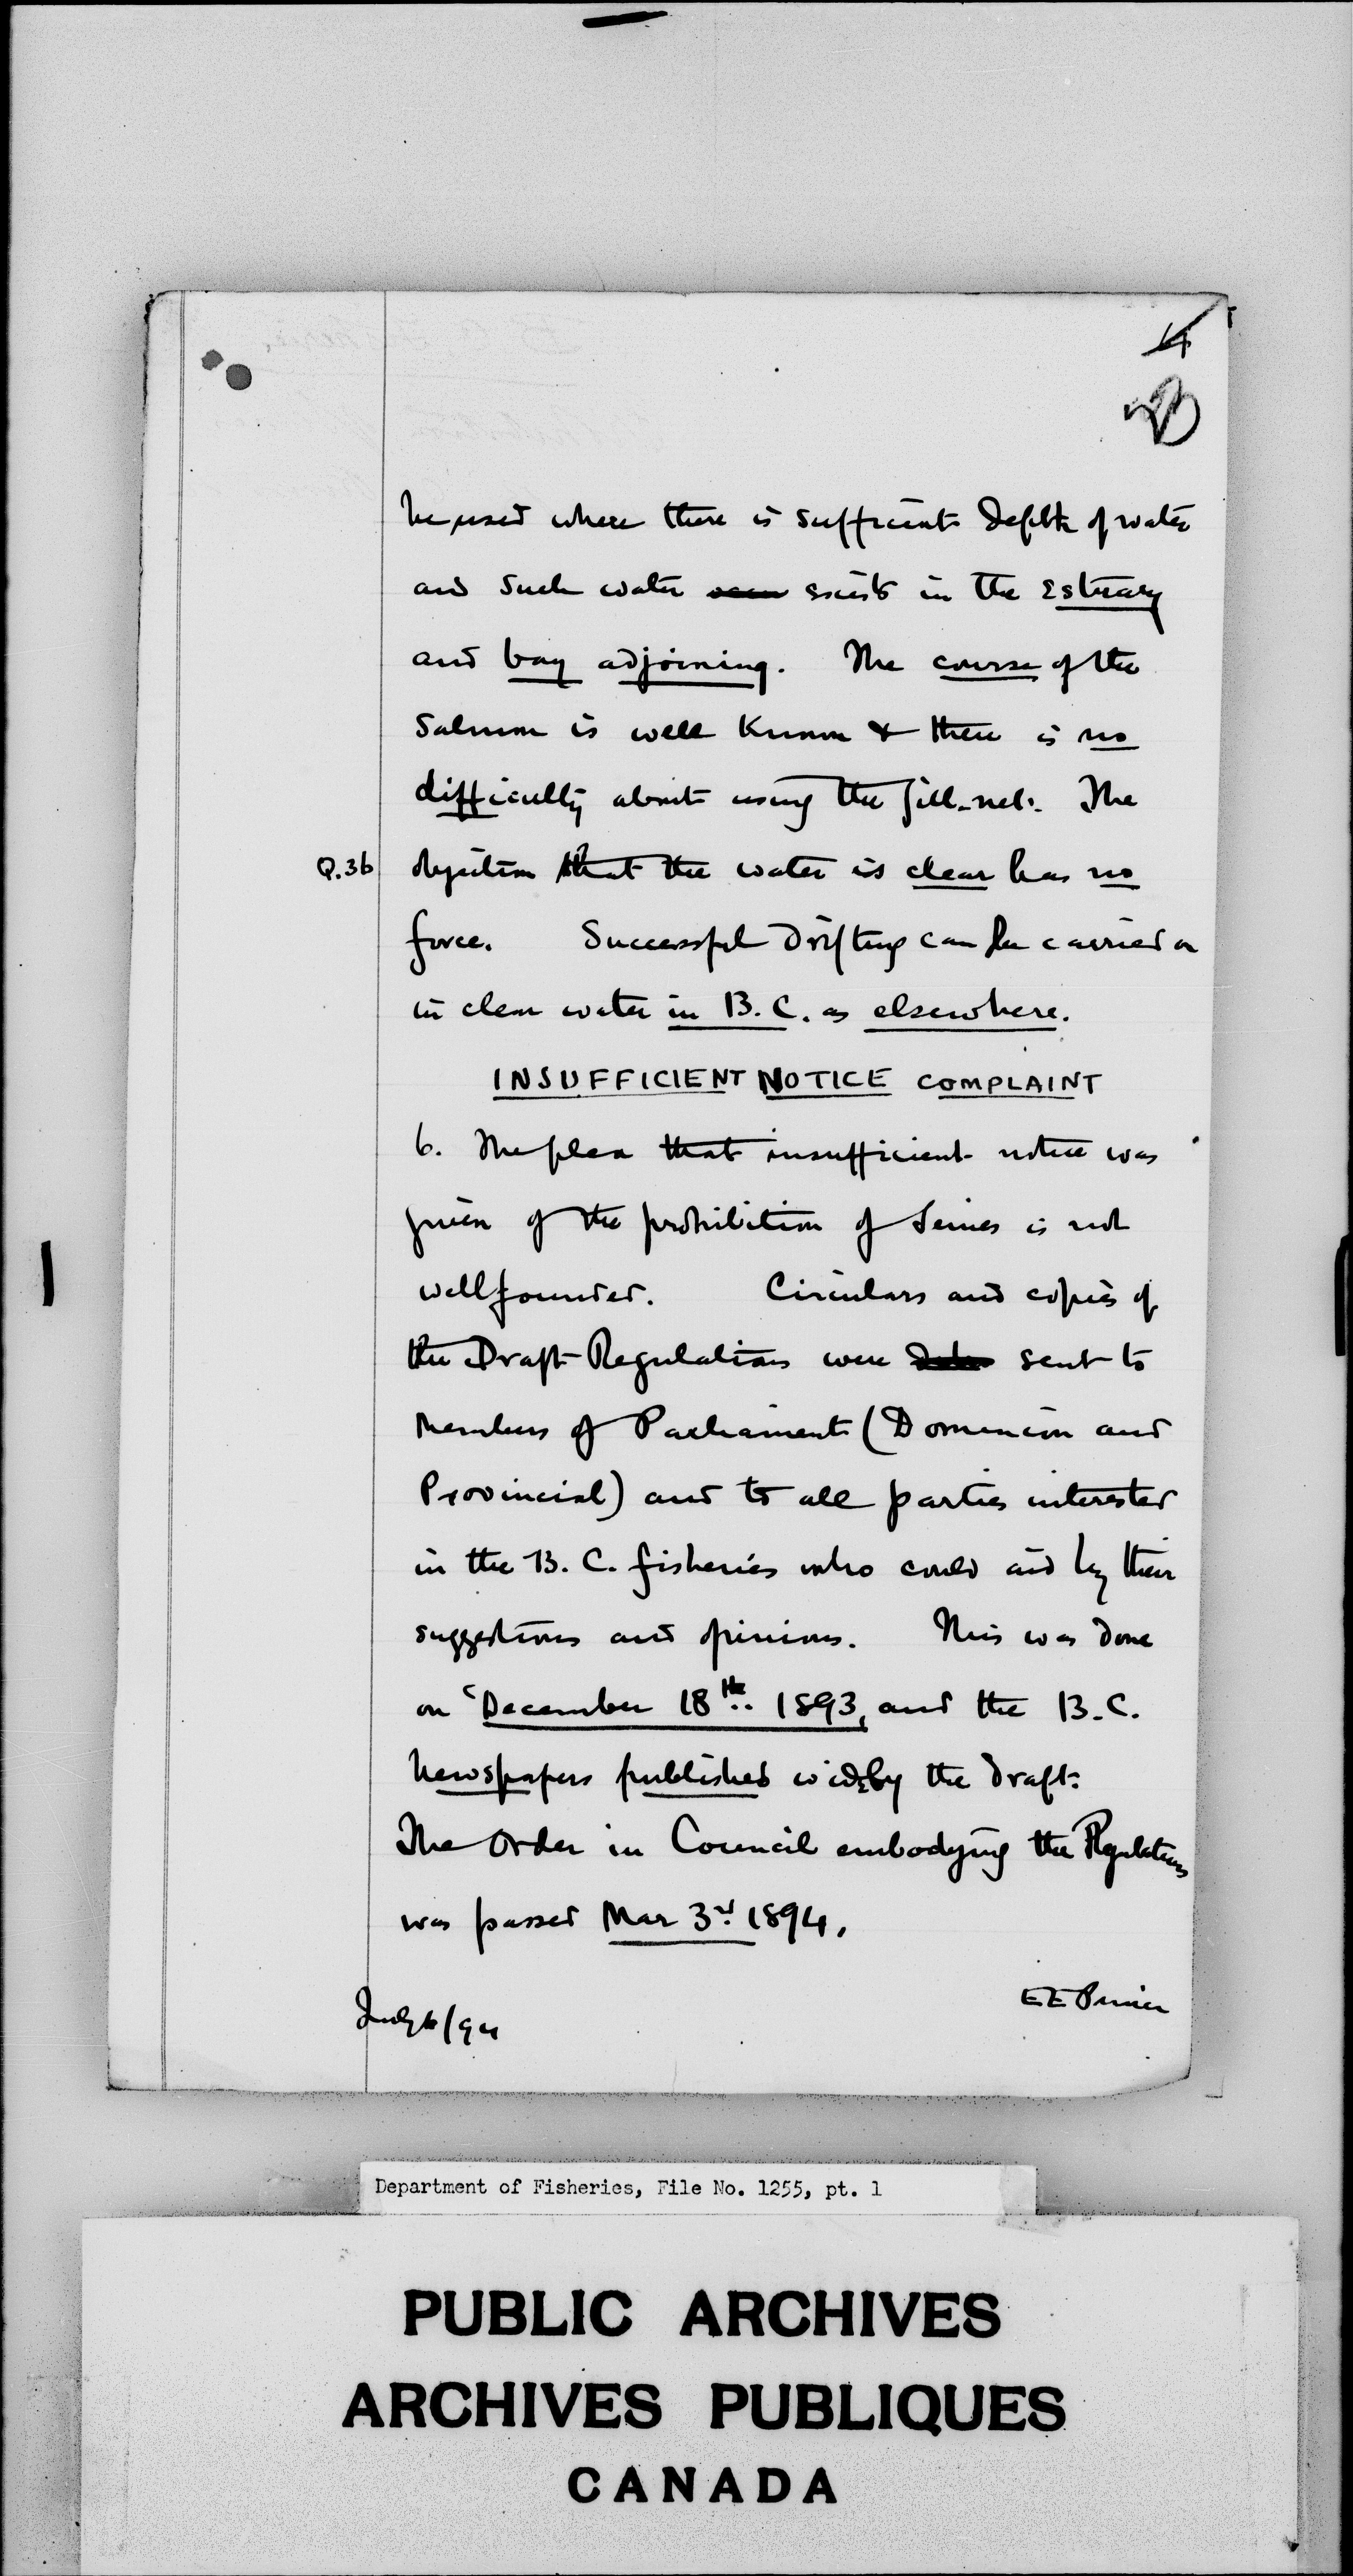 4
be used where there is sufficient depth of water
and such water exists in the Estuary
and bay adjoining. The course of the
Salmon is well known & there is no
difficulty about using the gill-net. The
Q.36 objection that the water is clear has no
force. Successful drifting can be carried on
in clear water in B.C. as elsewhere.
INSUFFICIENT NOTICE COMPLAINT
6. The plea that insufficient notice was
given of the prohibition of Seines is not
well founded. Circulars and copies of
the Draft Regulations were sent to
Members of Parliament (Dominion and
Provincial) and to all parties interested
in the B.C. fisheries who could aid by their
suggestions and opinions. This was done
on December 18th. 1893, and the B.C.
Newspapers published widely the draft.
The Order in Council embodying the Regulations
was passed Mar 3rd 1894.
EEPrince
July 6/94
Department of Fisheries, File No. 1255, pt. 1
PUBLIC ARCHIVES
ARCHIVES PUBLIQUES
CANADA